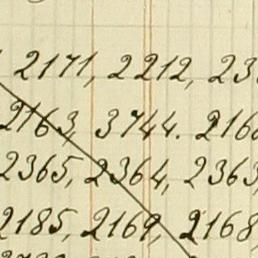 2171, 2212, 23
2163, 3744. 216
2365, 2364, 2363,
2185, 2169, 2168,